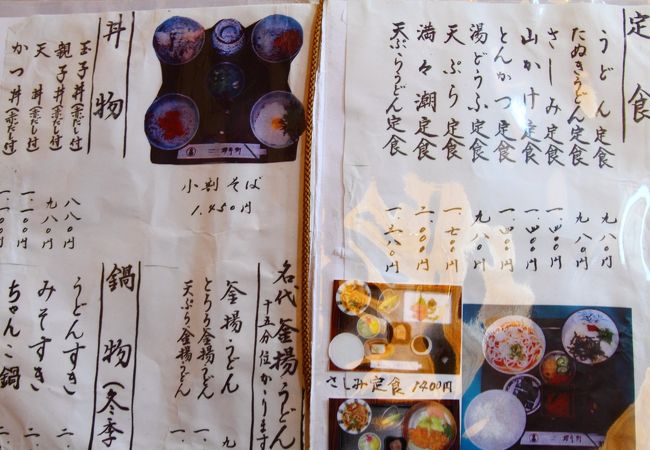 定食
うどん定食 九八〇円
たぬきうどん定食 九八〇円
さしみ定食 一.四〇〇円
山かけ定食 一.四〇〇円
とんかつ定食 一.四〇〇円
湯どうふ定食 九八〇円
天ぷら定食 一.七〇〇円
満々潮定食 二.〇〇〇円
天ぷらうどん定食 一.三八〇円
さしみ定食 1400円
小割そば
1.450円
丼物
玉子丼(赤だし付) 八八〇円
親子丼(赤だし付) 九八〇円
天丼(赤だし付) 一.一〇〇円
かつ丼(赤だし付) 一.一〇〇円
名代釜揚うどん
十五分位かゝります
釜揚うどん 九
とろろ釜揚うどん 一.
天ぷら釜揚うどん 一.
鍋物(冬季
うどんすき 二.
みそすき 二.
ちゃんこ鍋 二.